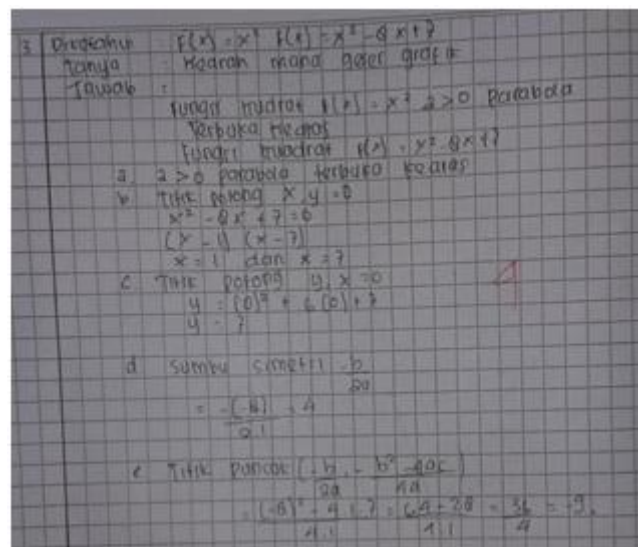 3 Diketahui : f(x) = x² f(x) = x² - 8x + 7
Tanya : Kearah mana geser grafik
Jawab :
Fungsi kuadrat f(x) = x² a > 0 Parabola
Terbuka keatas
Fungsi kuadrat f(x) = x² - 8x + 7
a. a > 0 parabola terbuka keatas
b Titik potong x, y = 0
x² - 8x + 7 = 0
(x - 1) (x - 7)
x = 1 dan x = 7
c Titik potong y, x = 0
y = (0)² + 6(0) + 7
y = 7
4
d sumbu simetri -b
2a
= -(-8) = 4
2.1
e Titik puncak (-b, - b² - 4ac)
2a 4a
= (-8)² - 4.1.7 = 64 - 28 = 36 = -9.
4.1 4.1 4